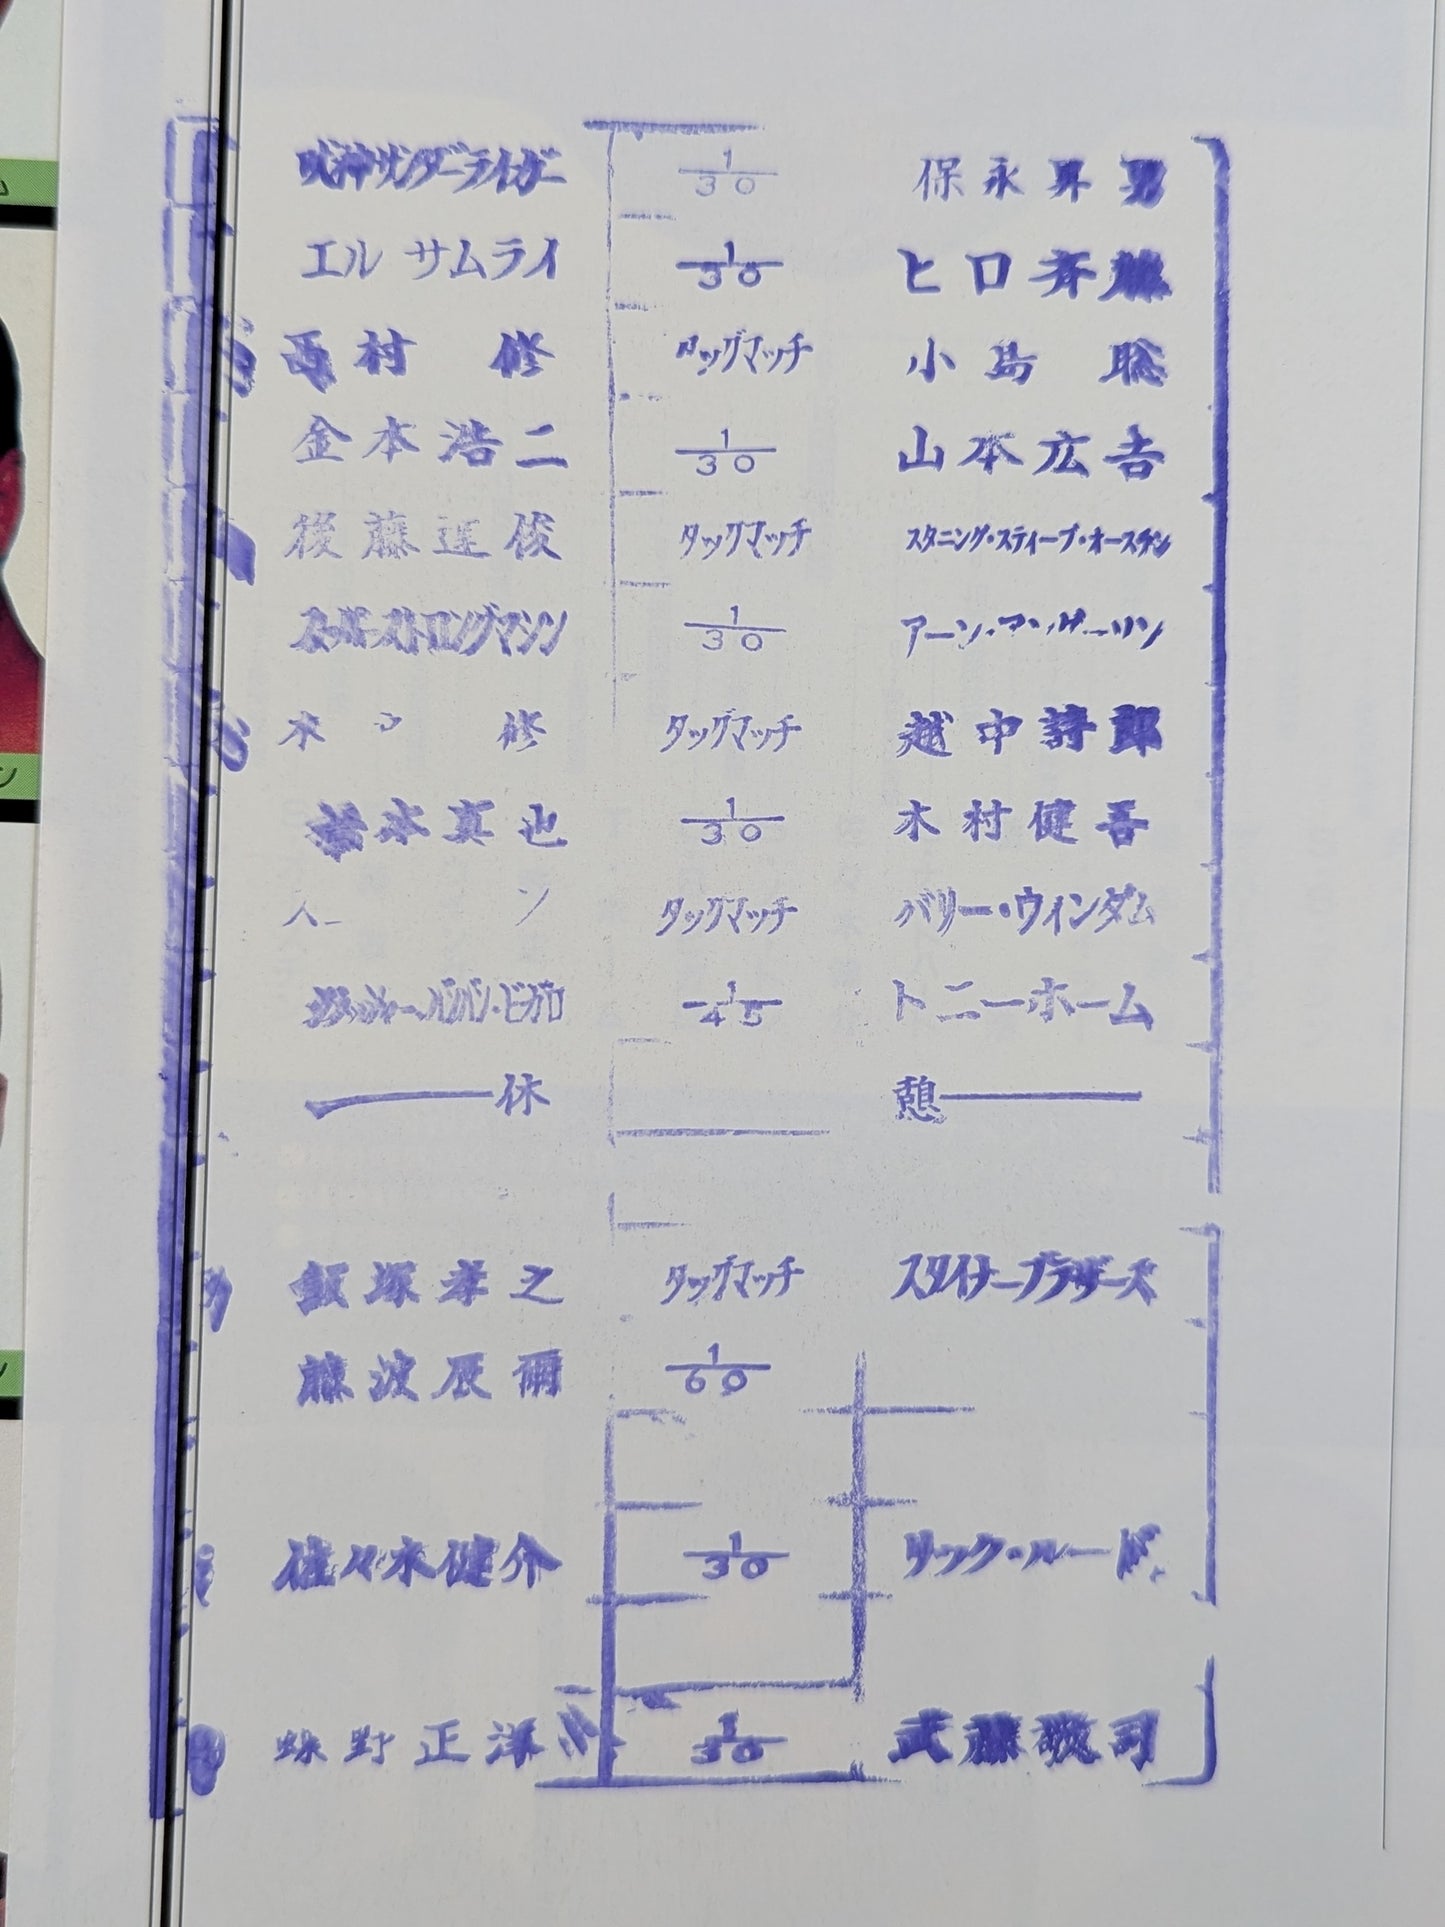 獣神サンダーライガー 1/30 保永昇男
エル サムライ 1/30 ヒロ斉藤
西村 修 タッグマッチ 小島 聡
金本浩二 1/30 山本広吉
後藤達俊 タッグマッチ スタニング・スティーブ・オースチン
スーパーストロングマシン 1/30 アーン・アンダーソン
木戸 修 タッグマッチ 越中詩郎
橋本真也 1/30 木村健吾
タッグマッチ バリー・ウィンダム
クラッシャー・バンバン・ビガロ 1/45 トニーホーム
休 憩
飯塚孝之 タッグマッチ スタイナーブラザーズ
藤波辰爾 1/60
佐々木健介 1/30 リック・ルード
蝶野正洋 1/30 武藤敬司